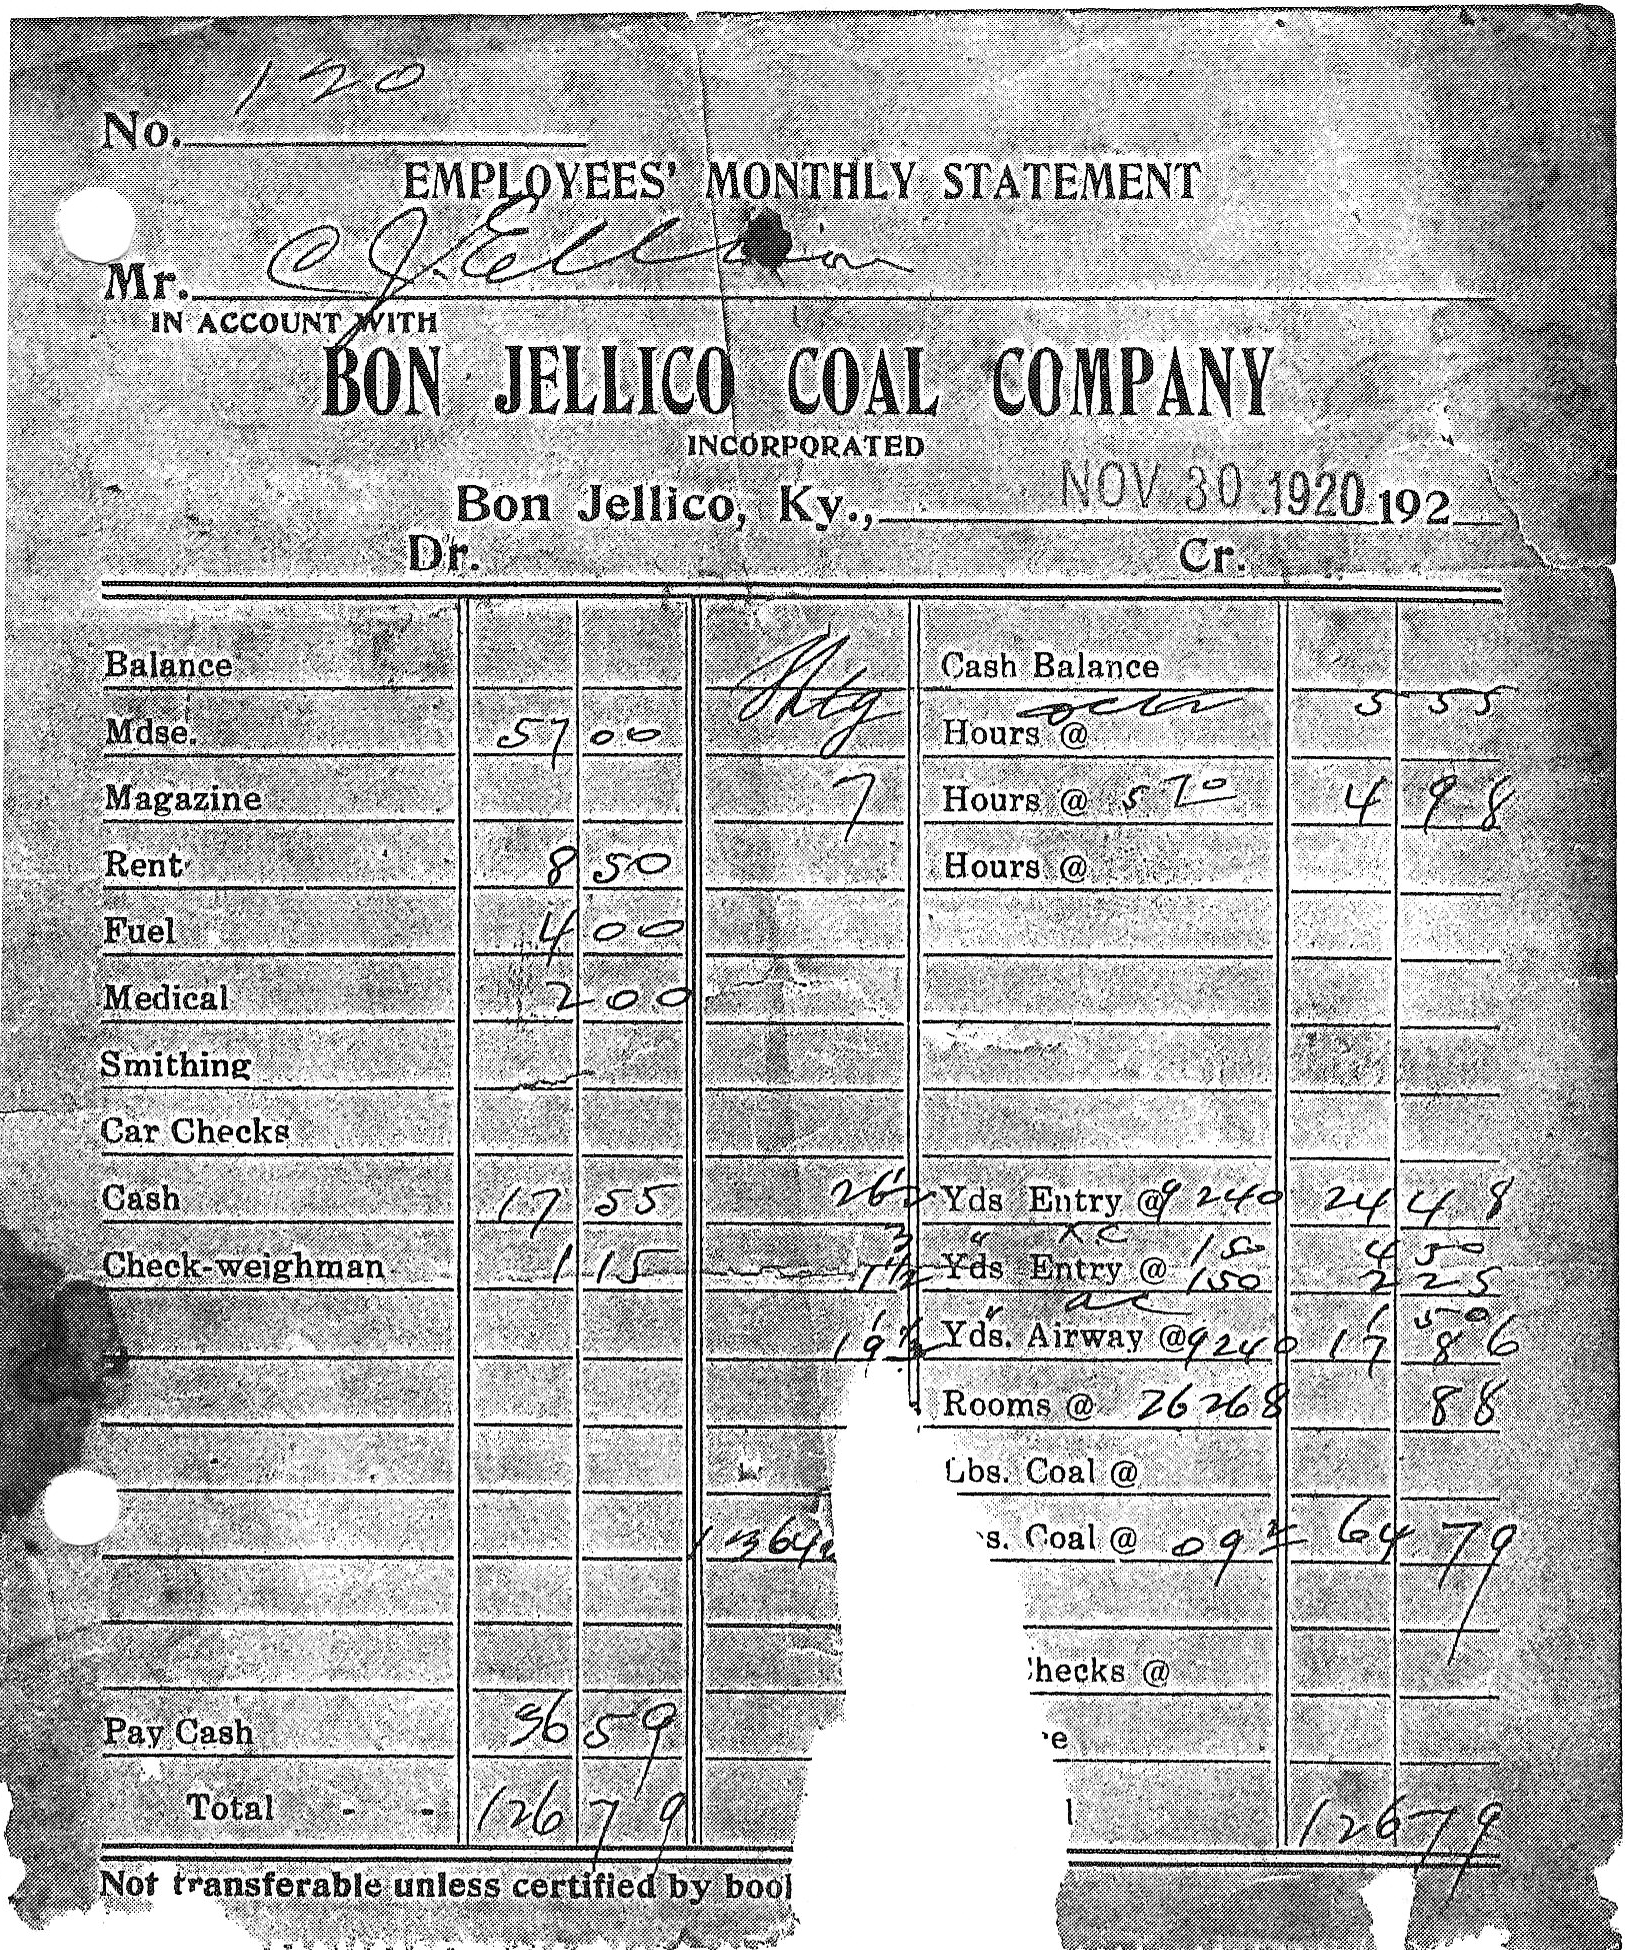 No. 120
EMPLOYEES' MONTHLY STATEMENT
Mr. C J. Ellison
IN ACCOUNT WITH
BON JELLICO COAL COMPANY
INCORPORATED
Bon Jellico, Ky., NOV 30 1920 192
Dr. Cr.
Balance Cash Balance
5 55
Mdse. 57 00 Hours @
Magazine 7 Hours @ 5 70 4 98
Rent 8 50 Hours @
Fuel 4 00
Medical 2 00
Smithing
Car Checks
Cash 17 55 26 1/2 Yds Entry @ 9240 24 48
3 " XC 150 4 50
Check-weighman 1 15 1 1/2 Yds Entry @ 150 2 25
1 " ac 1 50
19 1/3 Yds. Airway @ 9240 17 86
Rooms @ 26268 88
Lbs. Coal @
1364 s. Coal @ 09 2 64 79
hecks @
Pay Cash 36 59 e
Total - - 126 79 l 126 79
Not transferable unless certified by bool